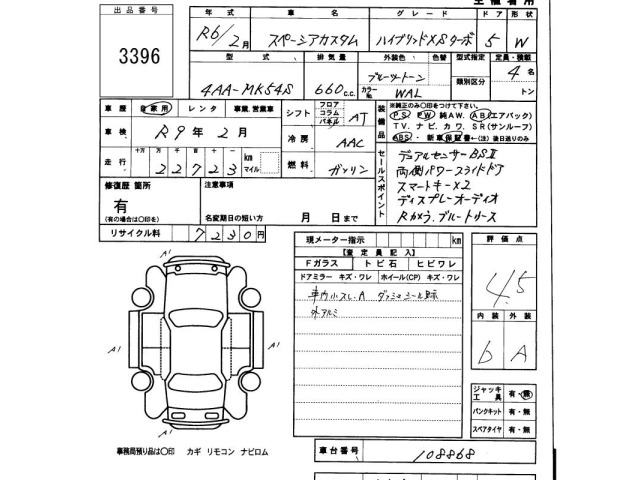 出品番号
3396
年式 車名 グレード ドア 形状
R6/2月 スペーシアカスタム ハイブリッドXSターボ 5 W
型式 排気量 外装色 色替 型式指定 定員・積載
4AA-MK54S 660c.c. ブルーツートン カラーNo. WAL 類別区分 4名 トン
車歴 自家用 レンタ 事業.営業車
車検 R9年2月
走行 十万 万 千 百 十 一 km マイル
22723
シフト フロア コラム パネル AT
冷房 AAC
燃料 ガソリン
装備品
※純正のみ〇印をつけて下さい。
PS PW 純AW. AB(エアバック)
TV. ナビ. カワ. SR(サンルーフ)
ABS・新車保証書←(注)後日送りのみ
セールスポイント
デュアルセンサーBSⅡ
両側パワースライドドア
スマートキー×2
ディスプレーオーディオ
Rカメラ. ブルートリース
修復歴 箇所
有
(有の場合は〇印を)
注意事項
名変期日の短い方 月 日まで
リサイクル料 7230円
現メーター指示 km
【査定員記入】
Fガラス トビ石 ヒビワレ
ドアミラー キズ・ワレ ホイール(CP) キズ・ワレ
車内小スレ.A ダッシュシール跡
外アルミ
評価点
4.5
内装 外装
b A
A1
A1
A1
A1
ジャッキ工具 有・無
パンクキット 有・無
スペアタイヤ 有・無
事務局預り品は〇印 カギ リモコン ナビロム
車台番号 108868